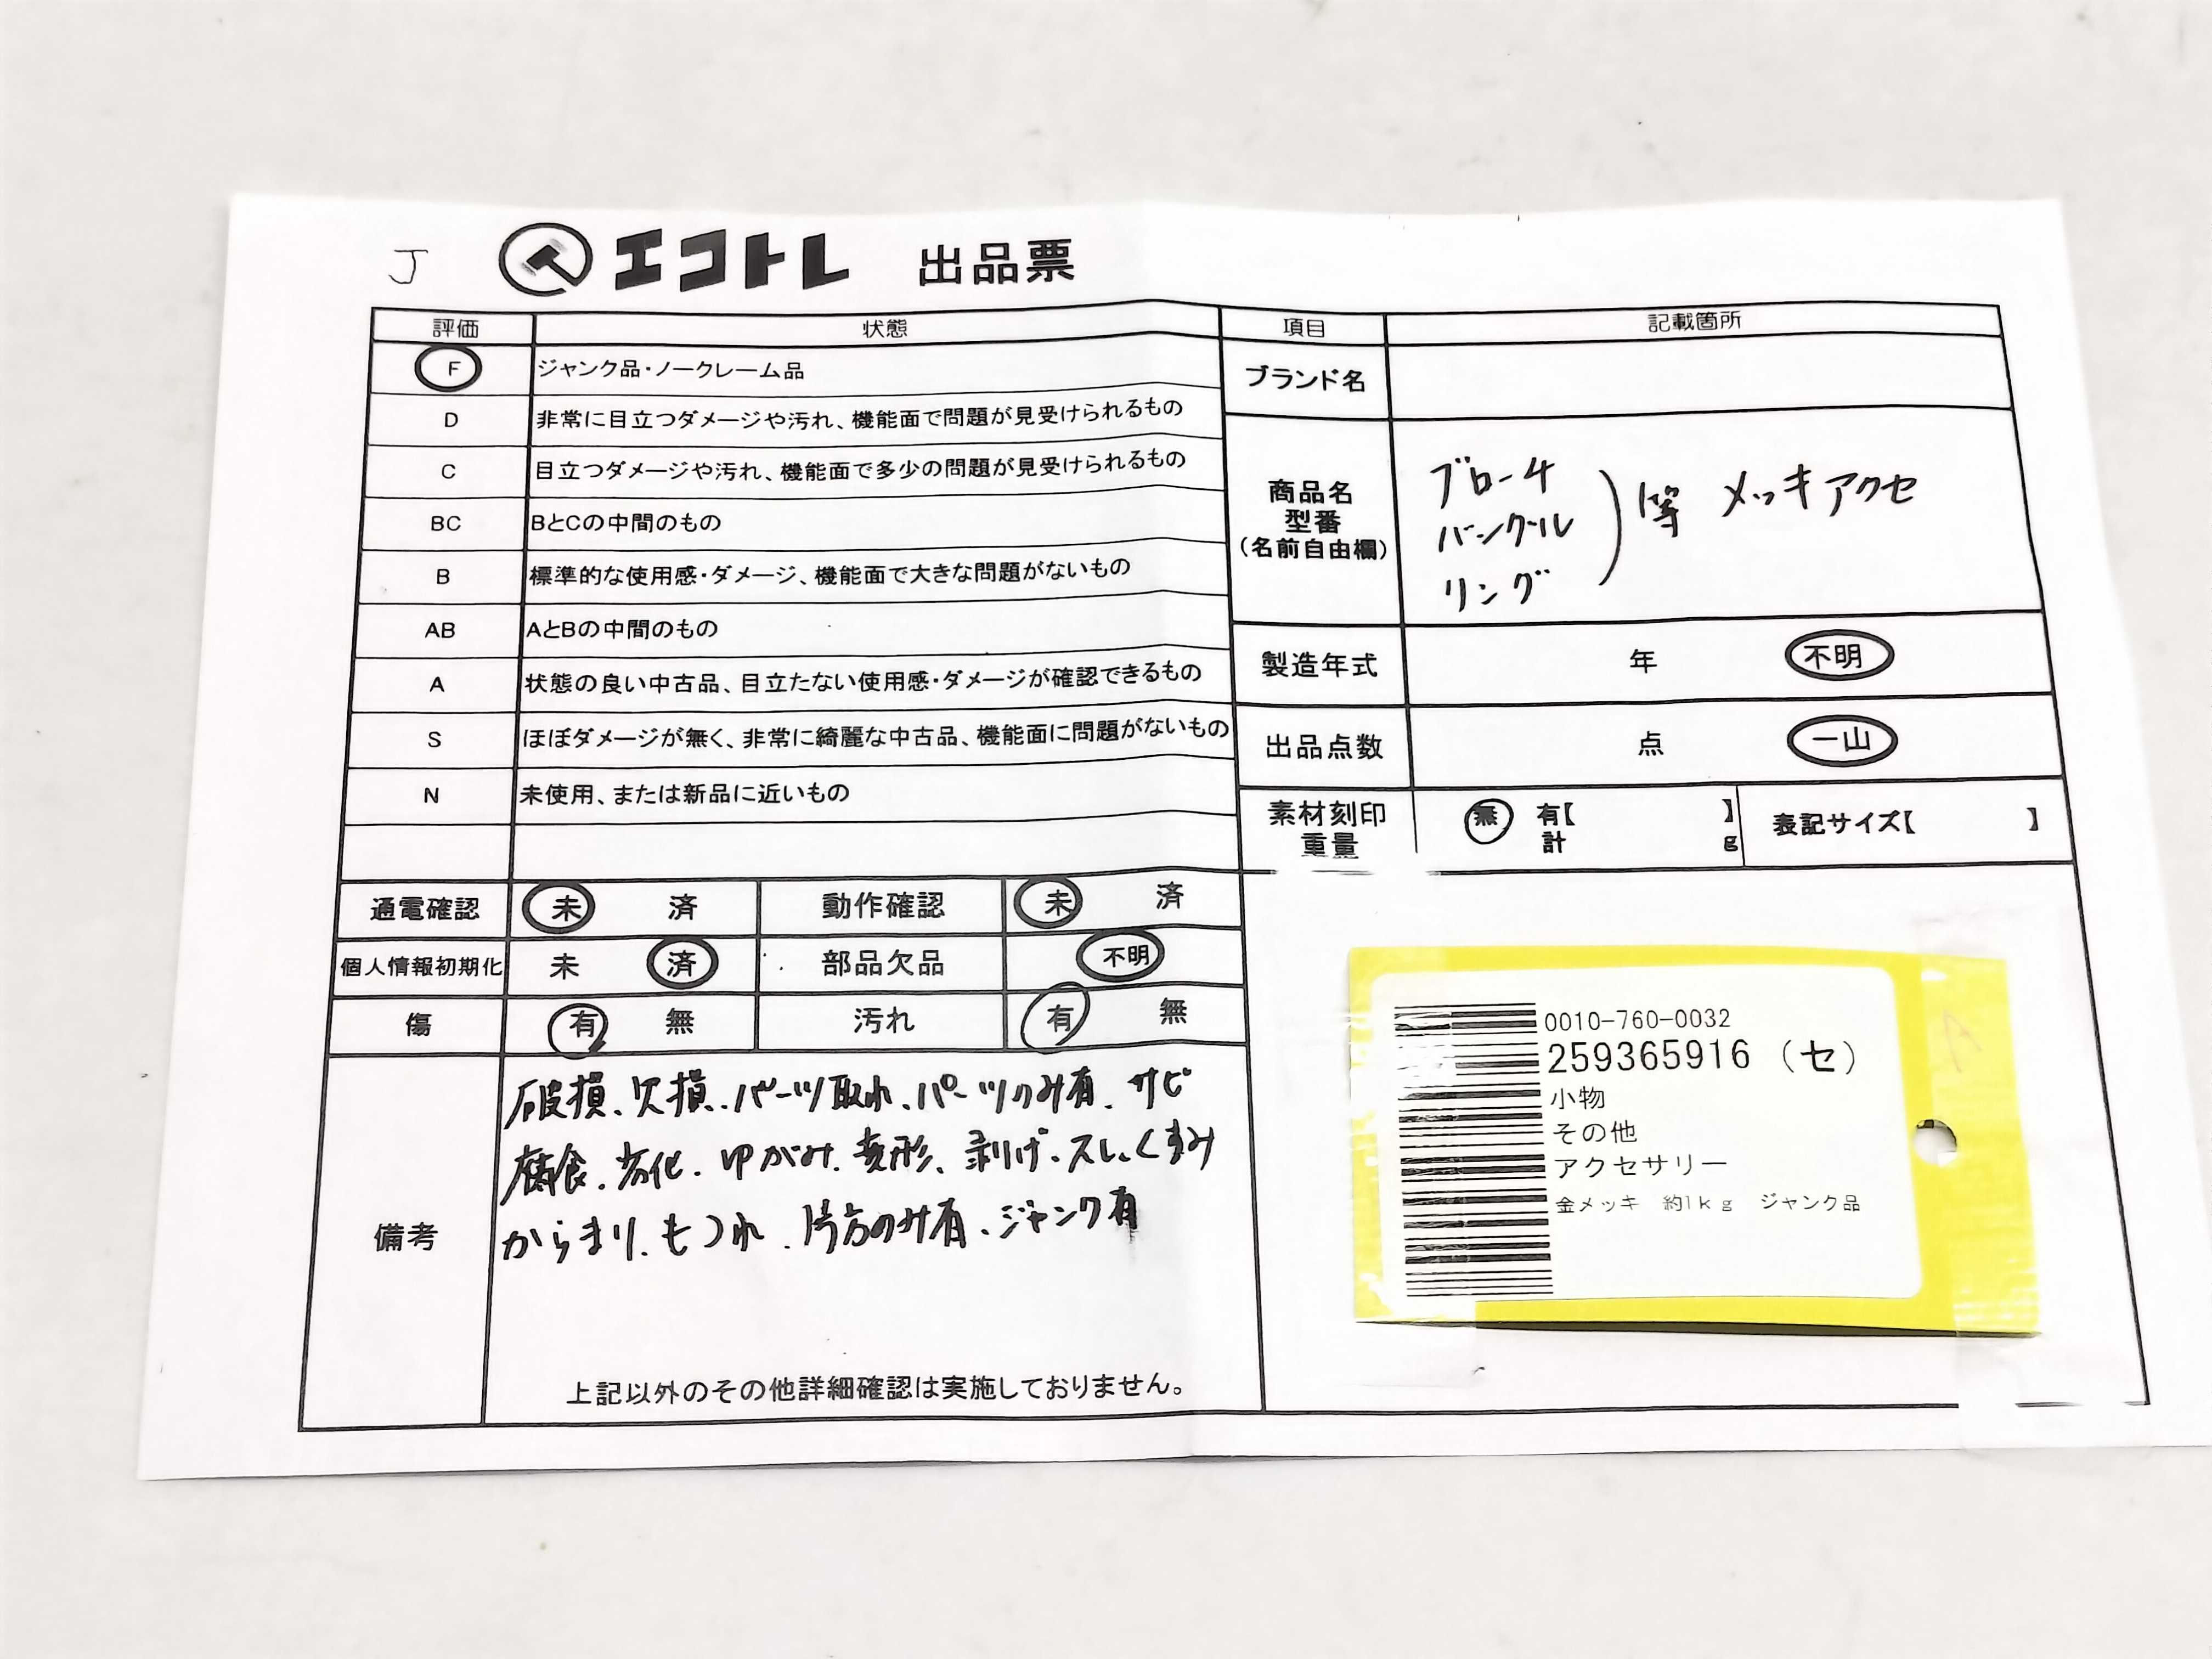 J エコトレ 出品票
評価 状態
F ジャンク品・ノークレーム品
D 非常に目立つダメージや汚れ、機能面で問題が見受けられるもの
C 目立つダメージや汚れ、機能面で多少の問題が見受けられるもの
BC BとCの中間のもの
B 標準的な使用感・ダメージ、機能面で大きな問題がないもの
AB AとBの中間のもの
A 状態の良い中古品、目立たない使用感・ダメージが確認できるもの
S ほぼダメージが無く、非常に綺麗な中古品、機能面に問題がないもの
N 未使用、または新品に近いもの
通電確認 未 済 動作確認 未 済
個人情報初期化 未 済 部品欠品 不明
傷 有 無 汚れ 有 無
備考
破損、欠損、パーツ取れ、パーツのみ有、サビ
腐食、劣化、ゆがみ、変形、剥げ、スレ、くすみ
からまり、もつれ、片方のみ有、ジャンク有
上記以外のその他詳細確認は実施しておりません。
項目 記載箇所
ブランド名
商品名
型番
(名前自由欄)
ブローチ
バングル
リング
) 等 メッキアクセ
製造年式 年 不明
出品点数 点 一山
素材刻印 無 有【 】 表記サイズ【 】
重量 計 g
0010-760-0032
259365916 (セ)
小物
その他
アクセサリー
金メッキ 約1kg ジャンク品